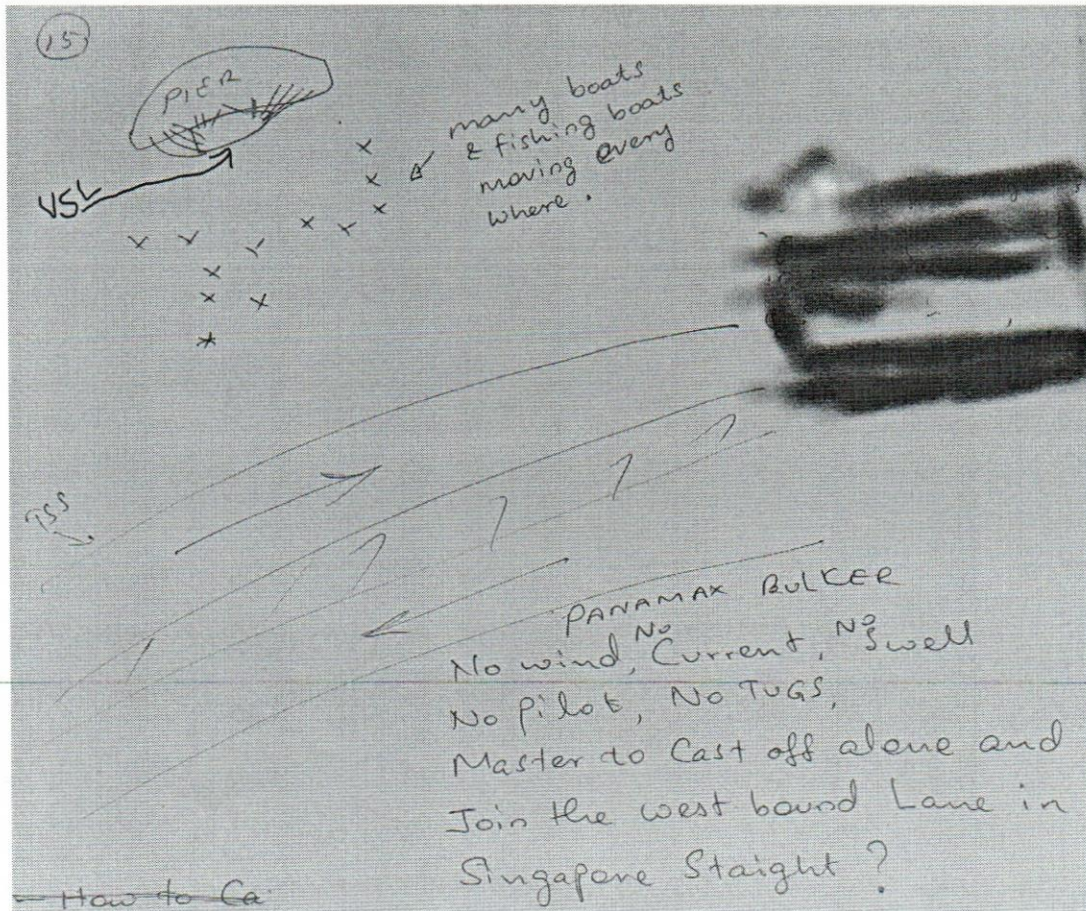 15
PIER
VSL
many boats
& fishing boats
moving every
where .
TSS
PANAMAX BULKER
No wind, No Current, No Swell
No Pilot, No TUGS,
Master to Cast off alone and
Join the west bound Lane in
Singapore Staight ?
How to Ca